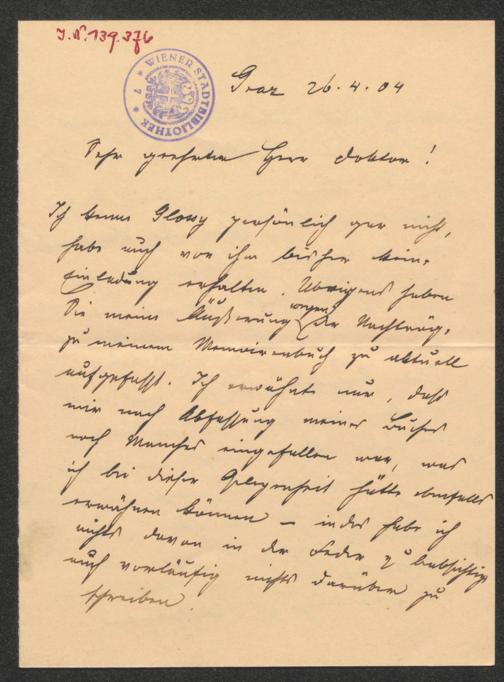 I.N. 139.376
WIENER STADTBIBLIOTHEK
* 7 *
Graz 26.4.04
Sehr geehrter Herr Doktor!
Ich kenne Glossy persönlich gar nicht,
habe auch von ihm bisher keine
Einladung erhalten. Übrigens haben
Sie meine Äußerung wegen der Nachträge
zu meinem Memoirenbuch zu aktuell
aufgefasst. Ich erwähnte nur, dass
mir nach Abfassung meines Buches
noch Manches eingefallen war, was
ich bei dieser Gelegenheit hätte ebenfalls
erwähnen können – indes habe ich
nichts davon in der Feder u beabsichtige
auch vorläufig nichts darüber zu
schreiben.